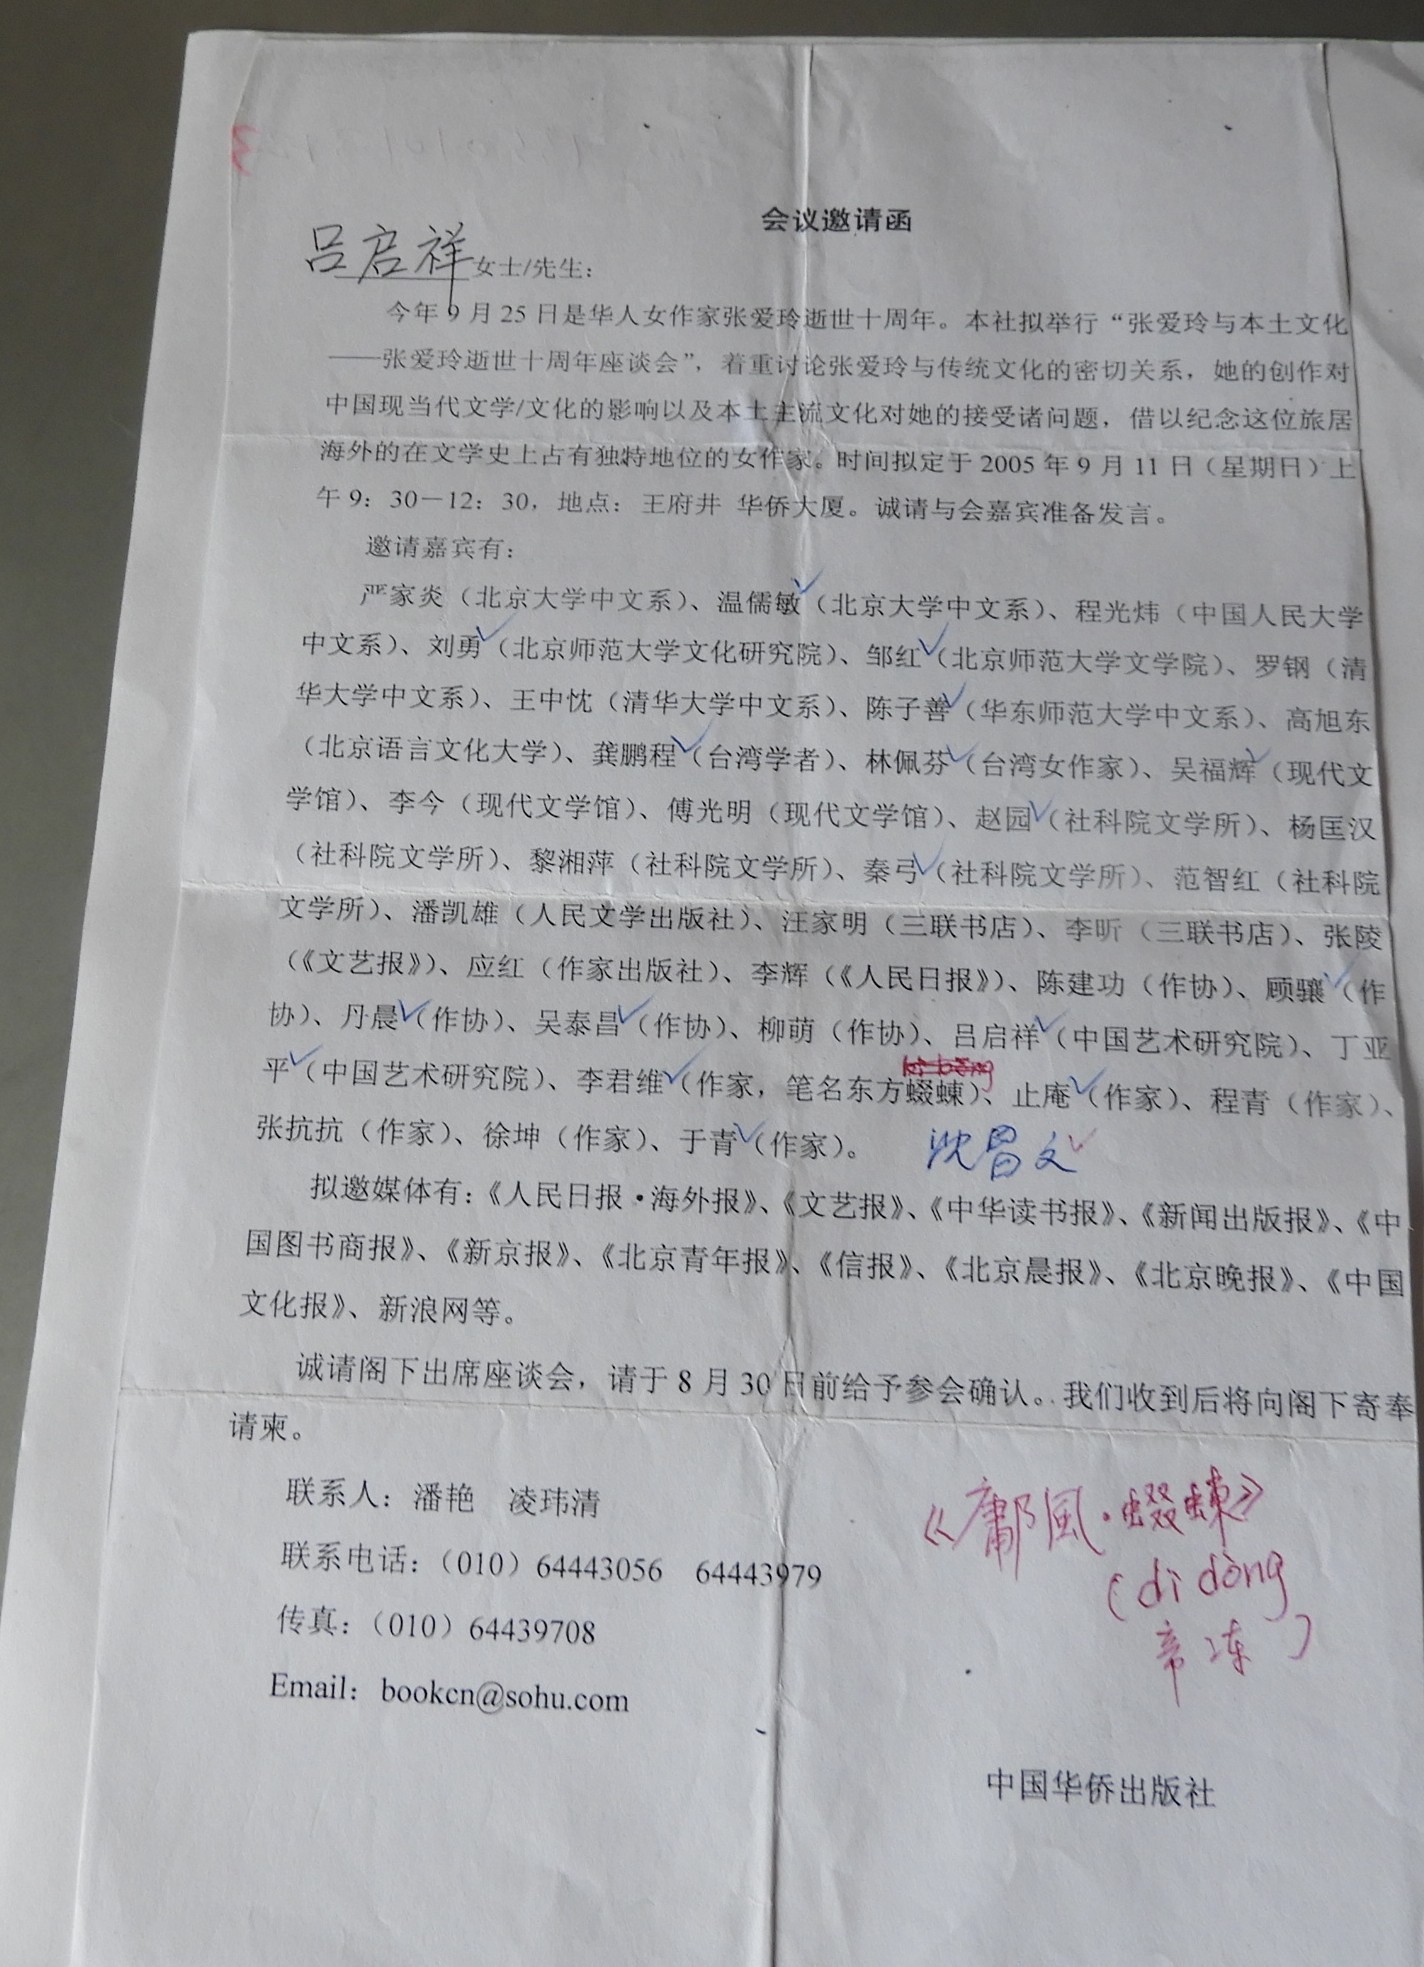 会议邀请函
吕启祥女士/先生：
今年9月25日是华人女作家张爱玲逝世十周年。本社拟举行“张爱玲与本土文化
——张爱玲逝世十周年座谈会”，着重讨论张爱玲与传统文化的密切关系，她的创作对
中国现当代文学/文化的影响以及本土主流文化对她的接受诸问题，借以纪念这位旅居
海外的在文学史上占有独特地位的女作家。时间拟定于2005年9月11日（星期日）上
午9：30－12：30，地点：王府井 华侨大厦。诚请与会嘉宾准备发言。
邀请嘉宾有：
严家炎（北京大学中文系）、温儒敏✓（北京大学中文系）、程光炜（中国人民大学
中文系）、刘勇✓（北京师范大学文化研究院）、邹红✓（北京师范大学文学院）、罗钢（清
华大学中文系）、王中忱（清华大学中文系）、陈子善✓（华东师范大学中文系）、高旭东
（北京语言文化大学）、龚鹏程✓（台湾学者）、林佩芬✓（台湾女作家）、吴福辉✓（现代文
学馆）、李今（现代文学馆）、傅光明（现代文学馆）、赵园✓（社科院文学所）、杨匡汉
（社科院文学所）、黎湘萍（社科院文学所）、秦弓✓（社科院文学所）、范智红（社科院
文学所）、潘凯雄（人民文学出版社）、汪家明（三联书店）、李昕（三联书店）、张陵
（《文艺报》）、应红（作家出版社）、李辉（《人民日报》）、陈建功（作协）、顾骧✓（作
协）、丹晨✓（作协）、吴泰昌✓（作协）、柳萌（作协）、吕启祥✓（中国艺术研究院）、丁亚
平✓（中国艺术研究院）、李君维✓（作家，笔名东方蝃蝀）、止庵✓（作家）、程青（作家）、
张抗抗（作家）、徐坤（作家）、于青✓（作家）。 沈昌文✓
拟邀媒体有：《人民日报·海外报》、《文艺报》、《中华读书报》、《新闻出版报》、《中
国图书商报》、《新京报》、《北京青年报》、《信报》、《北京晨报》、《北京晚报》、《中国
文化报》、新浪网等。
诚请阁下出席座谈会，请于8月30日前给予参会确认。我们收到后将向阁下寄奉
请柬。
联系人：潘艳 凌玮清
《鄘風·蝃蝀》
联系电话：（010）64443056 64443979
(dì dòng
传真：（010）64439708
帝冻)
Email：bookcn@sohu.com
中国华侨出版社